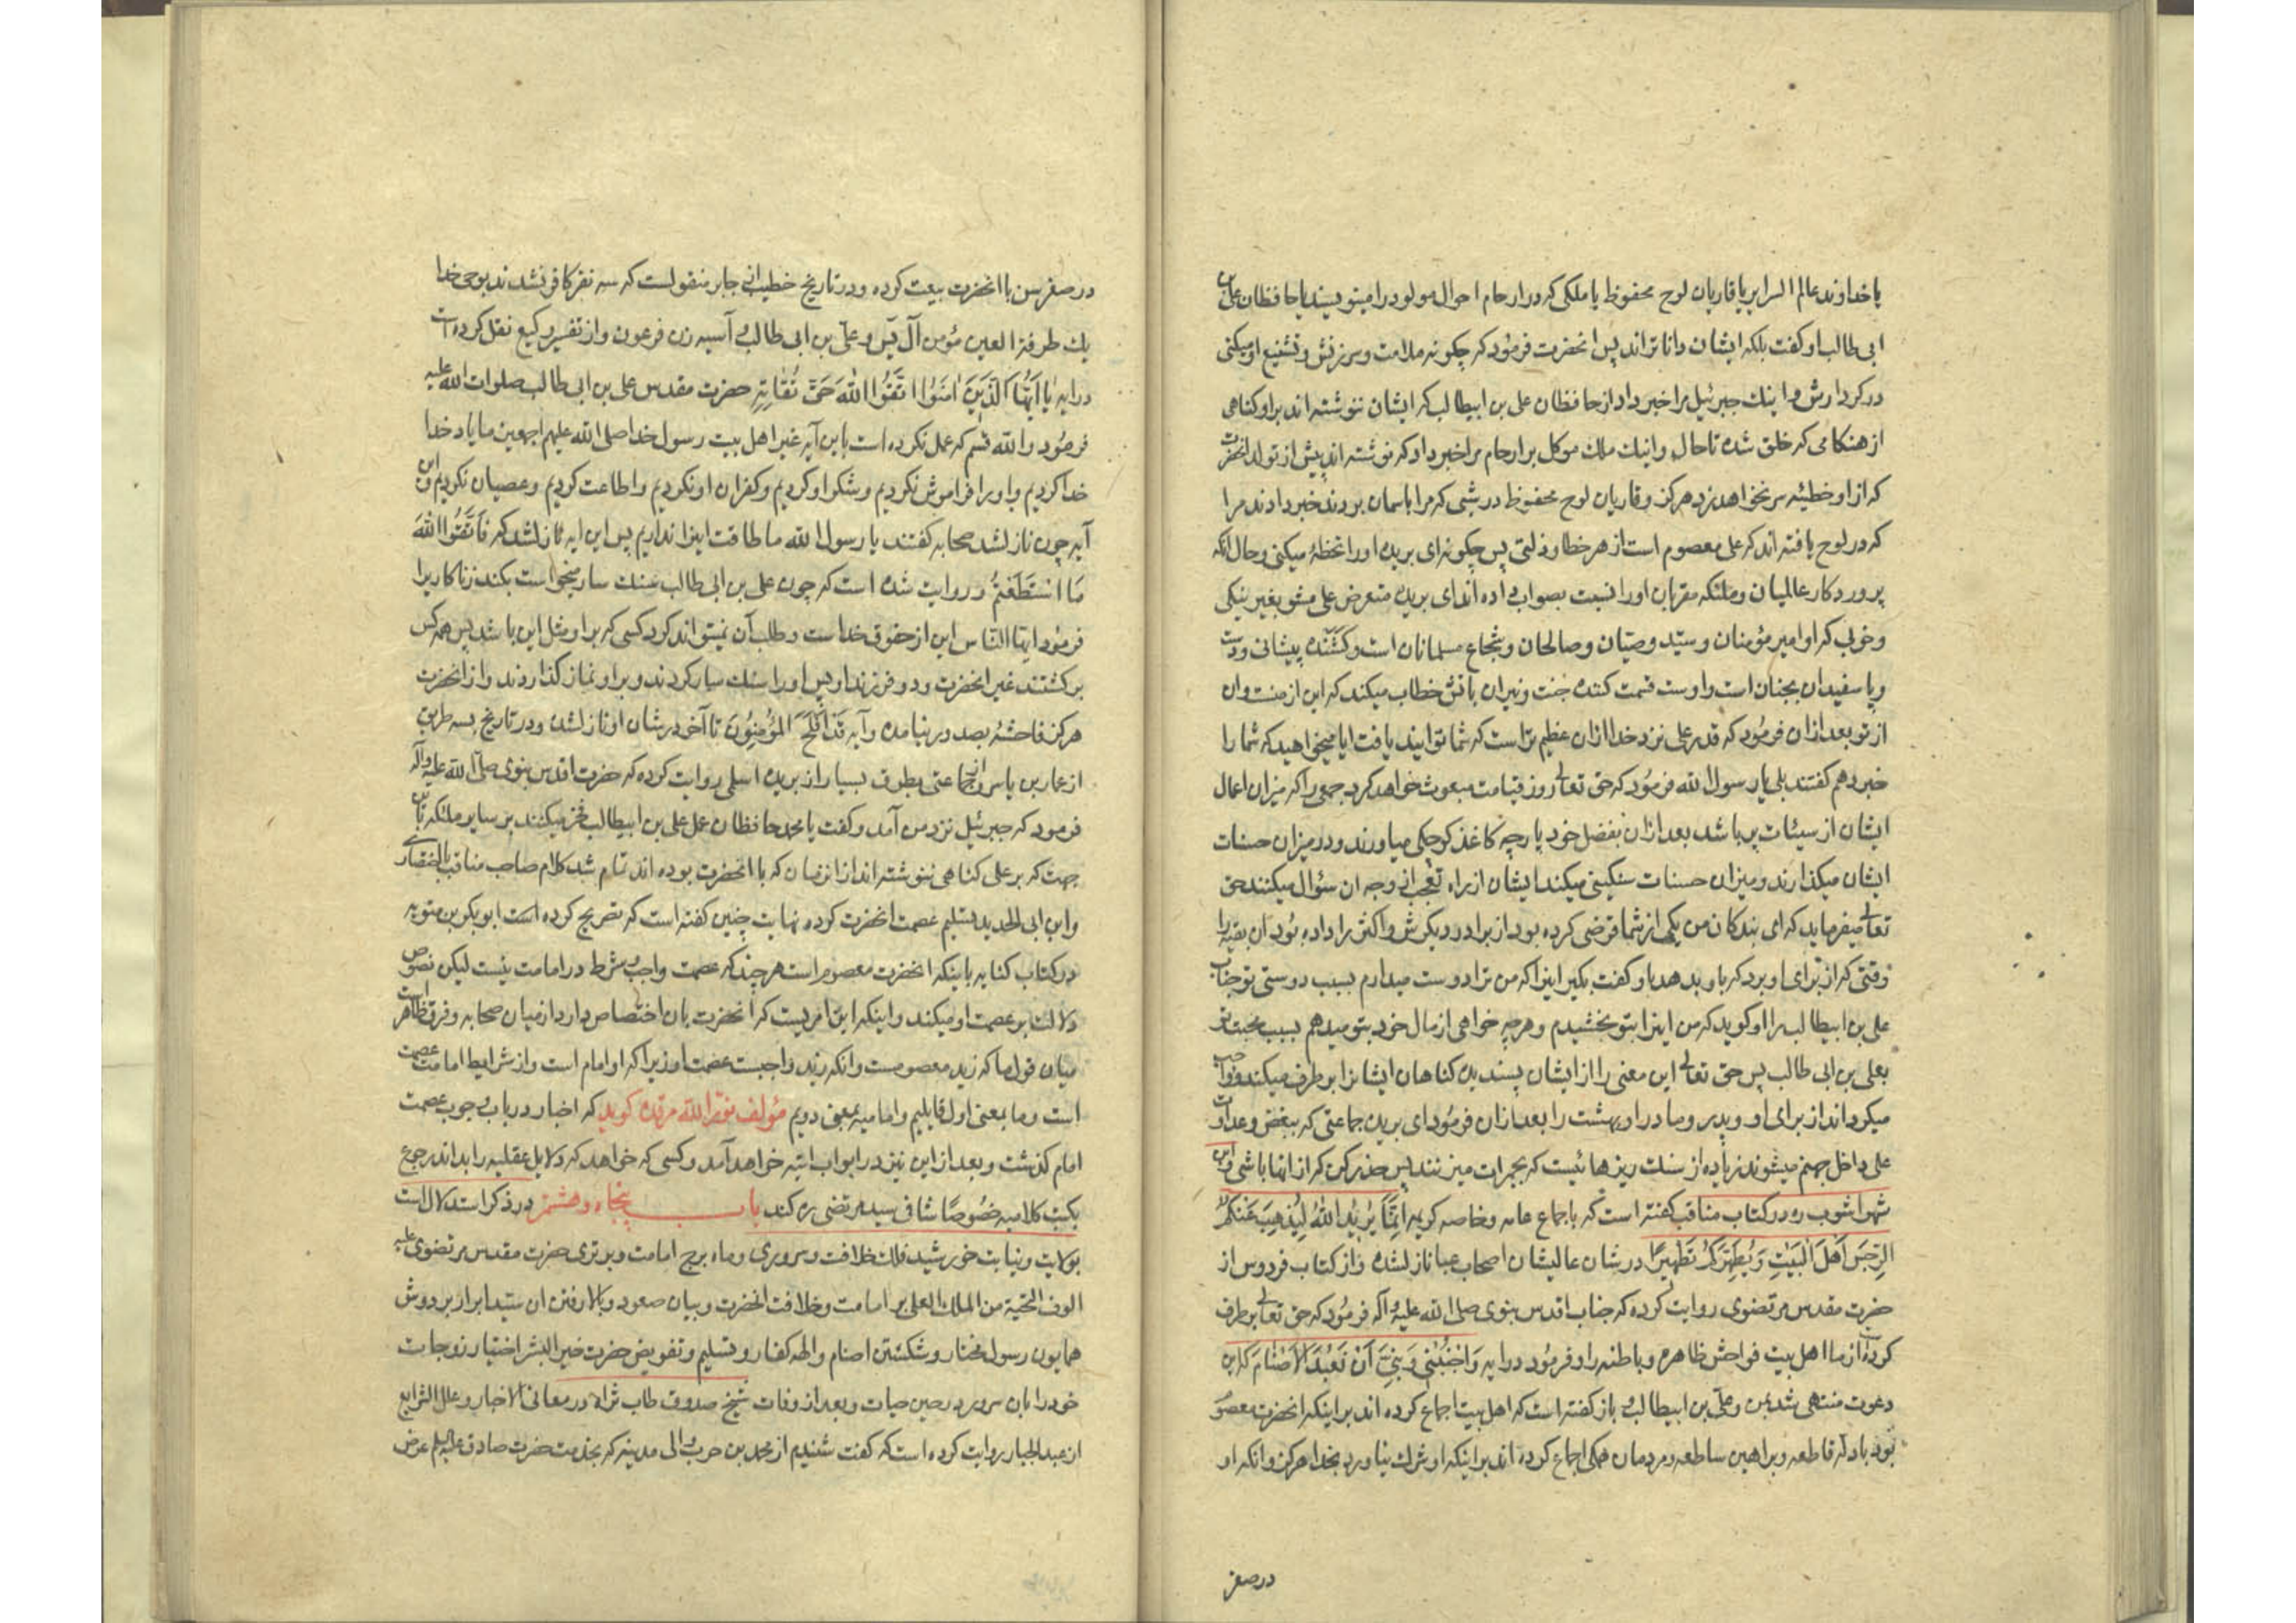 یا خداوند عالم السرایر یا قاریان لوح محفوظ یا ملکی که در ارحام احوال مولود را مینویسند یا حافظان علی بن
ابی طالب او گفت بلکه ایشان داناتراند پس انحضرت فرمود که چگونه ملامت و سرزنش و تشنیع او میکنی
در کردارش و اینك جبرئیل مرا خبر داد از حافظان علی بن ابیطالب که ایشان ننوشته اند براو کناهی
از هنکامی که خلق شده تا حال و اینك ملك موکل بر ارحام مرا خبر داد که نوشته اند پیش از تولد انحضرت
که از او خطیئه سر نخواهد زد هرکز و قاریان لوح محفوظ در شبی که مرا باسمان بردند خبر دادند مرا
که در لوح یافته اند که علی معصوم است از هر خطا و زلتی پس چگونه ای بریده او را تخطئه میکنی و حال انکه
پروردکار عالمیان و ملئکه مقربان او را نسبت بصواب داده اند ای بریده متعرض علی مشو بغیر نیکی
و خوبی که او امیر مؤمنان و سید وصیان و صالحان و شجاع مسلمانان است و کشنده پیشانی و دست
و پا سفیدان بجنان است و اوست قسمت کننده جنت و نیران باتش خطاب میکند که این از منست و ان
از تو بعد از ان فرمود که قدر علی نزد خدا ازان عظیم تر است که شما توانید یافت ایا میخواهید که شما را
خبر دهم گفتند بلی یا رسول الله فرمود که حق تعالی روز قیامت مبعوث خواهد کرد جمعی را که میزان اعمال
ایشان از سیئات پر باشد بعد ازان بفضل خود پارچه کاغذ کوچکی میاورند و در میزان حسنات
ایشان میکذارند و میزان حسنات سنکینی میکند ایشان از راه تعجب از وجه ان سؤال میکنند حق
تعالی میفرماید که ای بندکان من یکی از شما قرضی کرده بود از برادر دیکرش و اکثر را داده بود ان بقیه را
وقتی که از برای او برد که باو بدهد باو گفت بکیر اینرا که من ترا دوست میدارم بسبب دوستی تو جناب
علی بن ابیطالب را او کوید که من اینرا بتو بخشیدم و هرچه خواهی از مال خود بتو میدهم بسبب محبت تو
بعلی بن ابی طالب پس حق تعالی این معنی را از ایشان پسندیده کناهان ایشانرا برطرف میکند و واجب
میکرداند از برای او و پدر و مادر او بهشت را بعد ازان فرمود ای بریده جماعتی که ببغض و عداوت
علی داخل جهنم میشوند زیاده از سنك ریزهائیست که بجمرات میزنند پس حذر کن که از انها باشی و ابن
شهراشوب ره در کتاب مناقب گفته است که باجماع عامه و خاصه کریمه اِنَّمَا یُرِیدُ اللهُ لِیُذْهِبَ عَنْکُمُ
الرِّجْسَ اَهْلَ الْبَیْتِ وَ یُطَهِّرَکُمْ تَطْهِیرًا در شان عالیشان اصحاب عبا نازل شده و از کتاب فردوس از
حضرت مقدس مرتضوی روایت کرده که جناب اقدس نبوی صلی الله علیه واله فرمود که حق تعالی برطرف
کرده از ما اهل بیت فواحش ظاهره و باطنه را و فرمود در ایه وَاجْنُبْنِی وَ بَنِیَّ اَنْ نَعْبُدَ الاَصْنَامَ که این
دعوت منتهی شد بمن و علی بن ابیطالب و باز گفته است که اهل بیت اجماع کرده اند بر اینکه انحضرت معصوم
بود بادله قاطعه و براهین ساطعه و مردمان همکی اجماع کرده اند بر اینکه او شرك نیاورد بخدا هرکز و انکه او
در صغر
در صغر سن با انحضرت بیعت کرده و در تاریخ خطیب از جابر منقولست که سه نفر کافر نشدند بوحی خدا
یك طرفة العین مؤمن آل یس و علی بن ابی طالب و آسیه زن فرعون و از تفسیر وکیع نقل کرده است
در ایه یَا اَیُّهَا الَّذِینَ اٰمَنُوا اتَّقُوا اللهَ حَقَّ تُقَاتِهِ حضرت مقدس علی بن ابی طالب صلوات الله علیه
فرمود والله قسم که عمل نکرده است باین آیه غیر اهل بیت رسول خدا صلی الله علیهم اجمعین ما یاد خدا
خدا کردیم و او را فراموش نکردیم و شکر او کردیم و کفران او نکردیم و اطاعت کردیم و عصیان نکردیم و این
آیه چون نازل شد صحابه گفتند یا رسول الله ما طاقت اینرا نداریم پس این ایه نازل شد که فَاتَّقُوا اللهَ
مَا اسْتَطَعْتُمْ و روایت شده است که چون علی بن ابی طالب سنك سار میخواست بکند زناکاریرا
فرمود ایها الناس این از حقوق خداست و طلب آن نمیتواند کرد کسی که بر او مثل این باشد پس همه کس
برکشتند غیر انحضرت و دو فرزند او پس او را سنك سار کردند و بر او نماز گذاردند و از انحضرت
هرکز فاحشهٔ بصدور نیامده و آیه قَدْ اَفْلَحَ الْمُؤْمِنُونَ تا آخر در شان او نازل شده و در تاریخ بسه طریق
از عمار بن یاسر و از جماعتی بطرق بسیار از بریده اسلمی روایت کرده که حضرت اقدس نبوی صلی الله علیه واله
فرمود که جبرئیل نزد من آمد و گفت یا محمد حافظان عمل علی بن ابیطالب فخر میکنند بر سایر ملئکه باین
جهت که بر علی کناهی ننوشته اند از انزمان که با انحضرت بوده اند تمام شد کلام صاحب مناقب باختصار
و ابن ابی الحدید تسلیم عصمت انحضرت کرده نهایت چنین گفته است که تصریح کرده است ابو بکر بن متویه
در کتاب کفایه باینکه انحضرت معصوم است هرچند که عصمت واجب و شرط در امامت نیست لیکن نصوص
دلالت بر عصمت او میکند و اینکه این امریست که انحضرت بان اختصاص دارد از میان صحابه و فرق ظاهر است
میان قول ما که زید معصومست و انکه زید واجبست عصمت او زیرا که او امام است و از شرایط امامت عصمت
است و ما بمعنی اول قایلیم و امامیه بمعنی دویم مؤلف نور الله مرقده کوید که اخبار در باب وجوب عصمت
امام گذشت و بعد از این نیز در ابواب اتیه خواهد آمد و کسی که خواهد که دلایل عقلیه را بداند رجوع
بکتب کلامیه خصوصًا شافی سید مرتضی ره کند باب پنجاه و هشتم در ذکر استدلال است
بولایت و نیابت خورشید فلك خلافت و سروری و ماه برج امامت و برتری حضرت مقدس مرتضوی علیه
الوف التحیة من الملك العلی بر امامت و خلافت انحضرت و بیان صعود و بالا رفتن ان سید ابرار بر دوش
همایون رسول مختار و شکستن اصنام والهه کفار و تسلیم و تفویض حضرت خیر البشر اختیار زوجات
خود را بان سرور در حین حیات و بعد از وفات شیخ صدوق طاب ثراه در معانی الاخبار و علل الشرایع
از عبد الجبار روایت کرده است که گفت شنیدم از محمد بن حرب والی مدینه که بخدمت حضرت صادق علیه السلام عرض